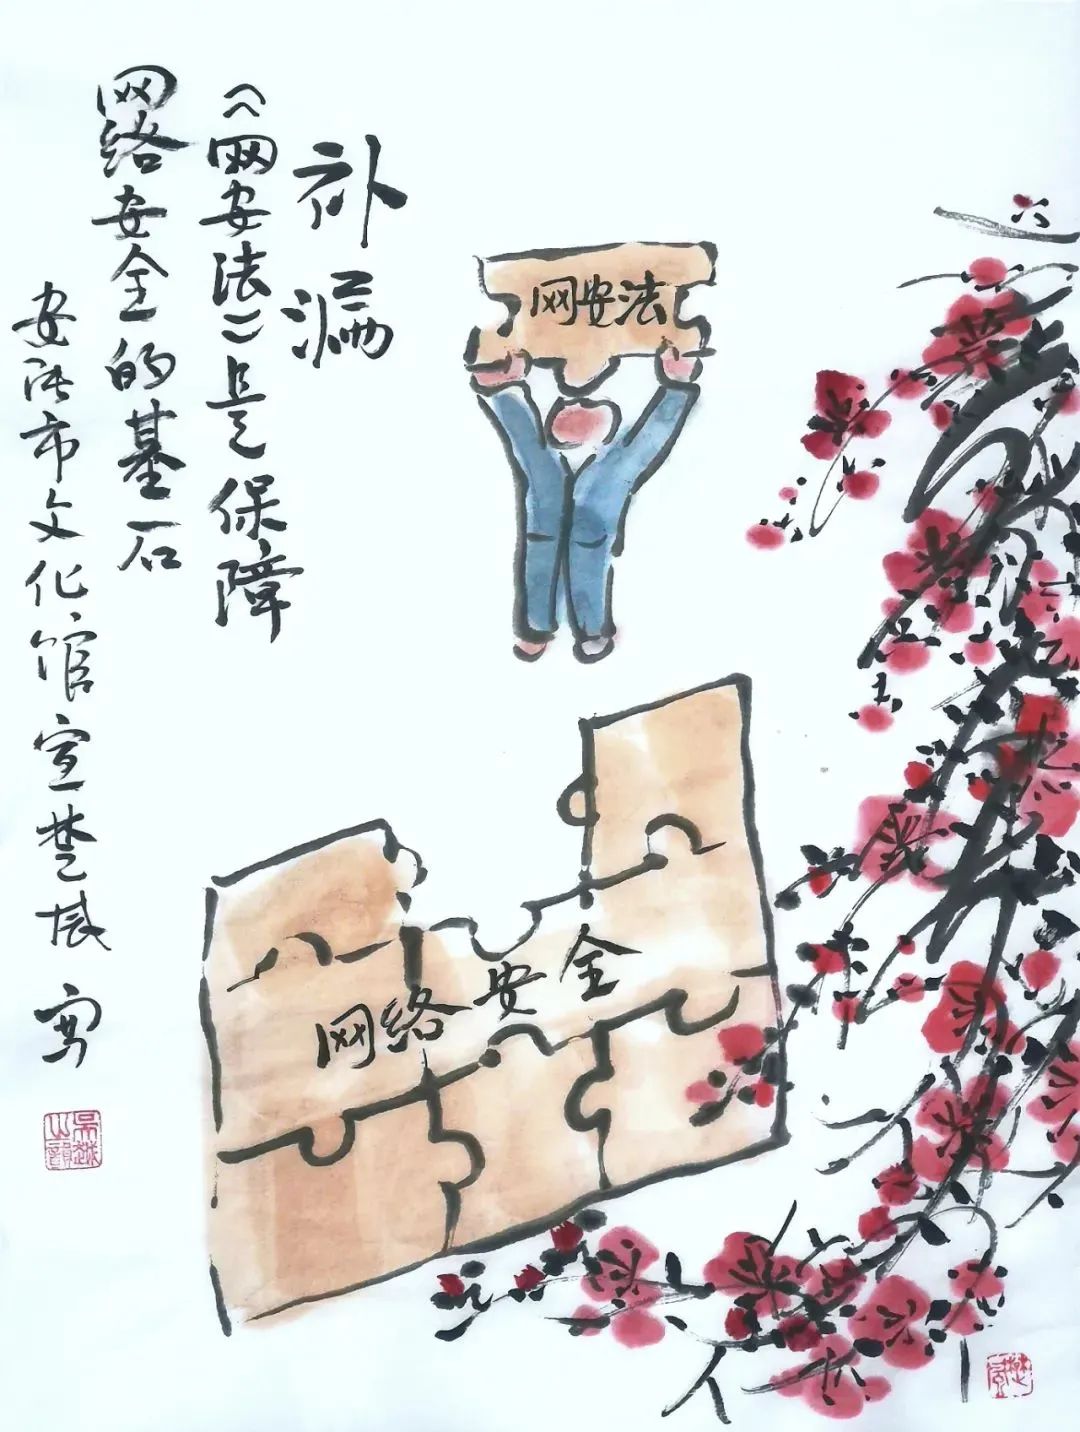 补漏
《网安法》是保障
网络安全的基石
安陆市文化馆宣楚 写
吴越山韻
网安法
网络安全